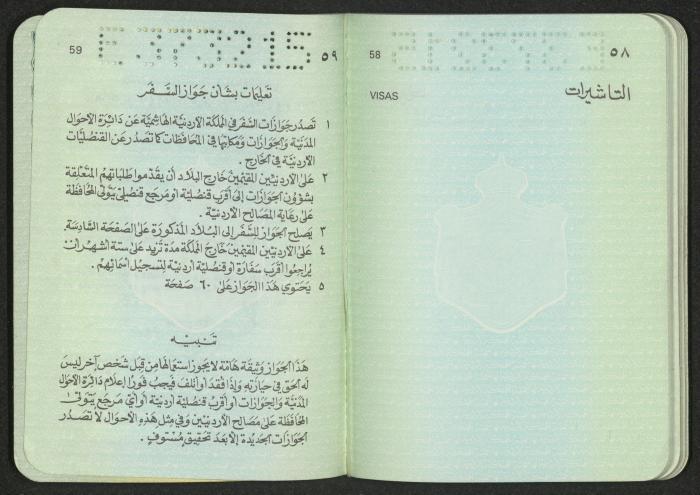 59
٥٩
تعليمات بشأن جواز السفر
١ تصدر جوازات السفر في المملكة الأردنية الهاشمية عن دائرة الأحوال
المدنية والجوازات ومكاتبها في المحافظات كما تصدر عن القنصليات
الأردنية في الخارج .
٢ على الأردنيين المقيمين خارج البلاد أن يقدموا طلباتهم المتعلقة
بشؤون الجوازات إلى أقرب قنصلية او مرجع قنصلي يتولى المحافظة
على رعاية المصالح الأردنية .
٣ يصلح الجواز للسفر الى البلاد المذكورة على الصفحة السادسة.
٤ على الأردنيين المقيمين خارج المملكة مدة تزيد على ستة أشهر أن
يراجعوا أقرب سفارة او قنصلية أردنية لتسجيل أسمائهم .
٥ يحتوي هذا الجواز على ٦٠ صفحة
تنبيه
هذا الجواز وثيقة هامة لا يجوز استعمالها من قبل شخص آخر ليس
له الحق في حيازته وإذا فقد أو أتلف فيجب فورًا إعلام دائرة الأحوال
المدنية والجوازات أو أقرب قنصلية أردنية أو أي مرجع يتولى
المحافظة على مصالح الأردنيين وفي مثل هذه الأحوال لا تصدر
الجوازات الجديدة إلا بعد تحقيق مستوفٍ .
58
٥٨
VISAS
التاشيرات